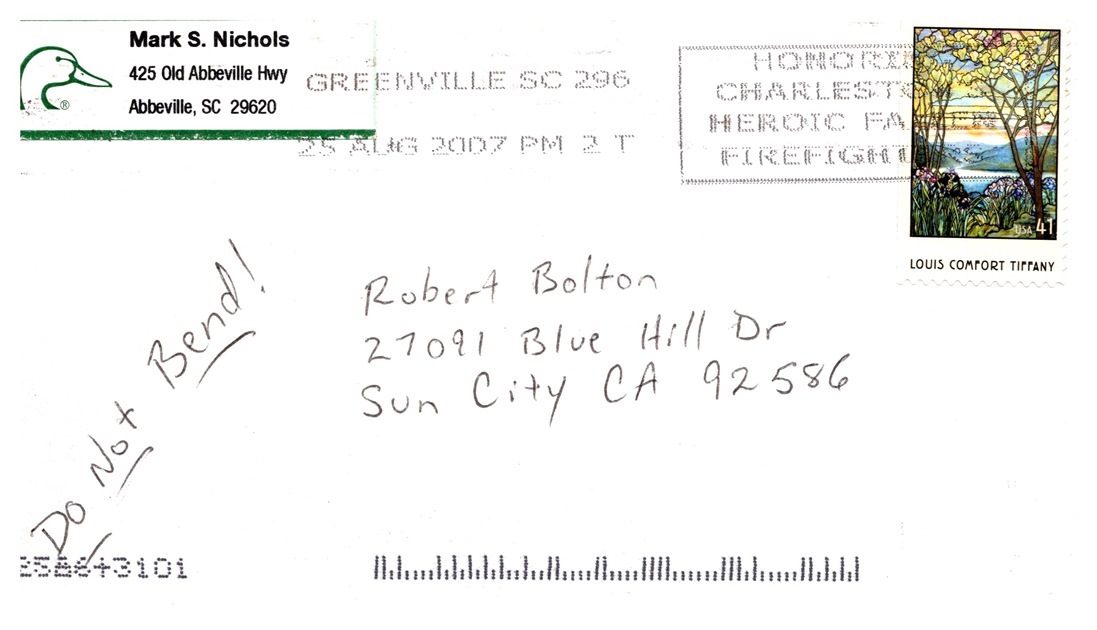 Mark S. Nichols
425 Old Abbeville Hwy
Abbeville, SC 29620
®
GREENVILLE SC 296
25 AUG 2007 PM 2 T
HONORI
CHARLESTO
HEROIC FA EN
FIREFIGH
USA 41
LOUIS COMFORT TIFFANY
Robert Bolton
27091 Blue Hill Dr
Sun City CA 92586
Do Not Bend!
3101